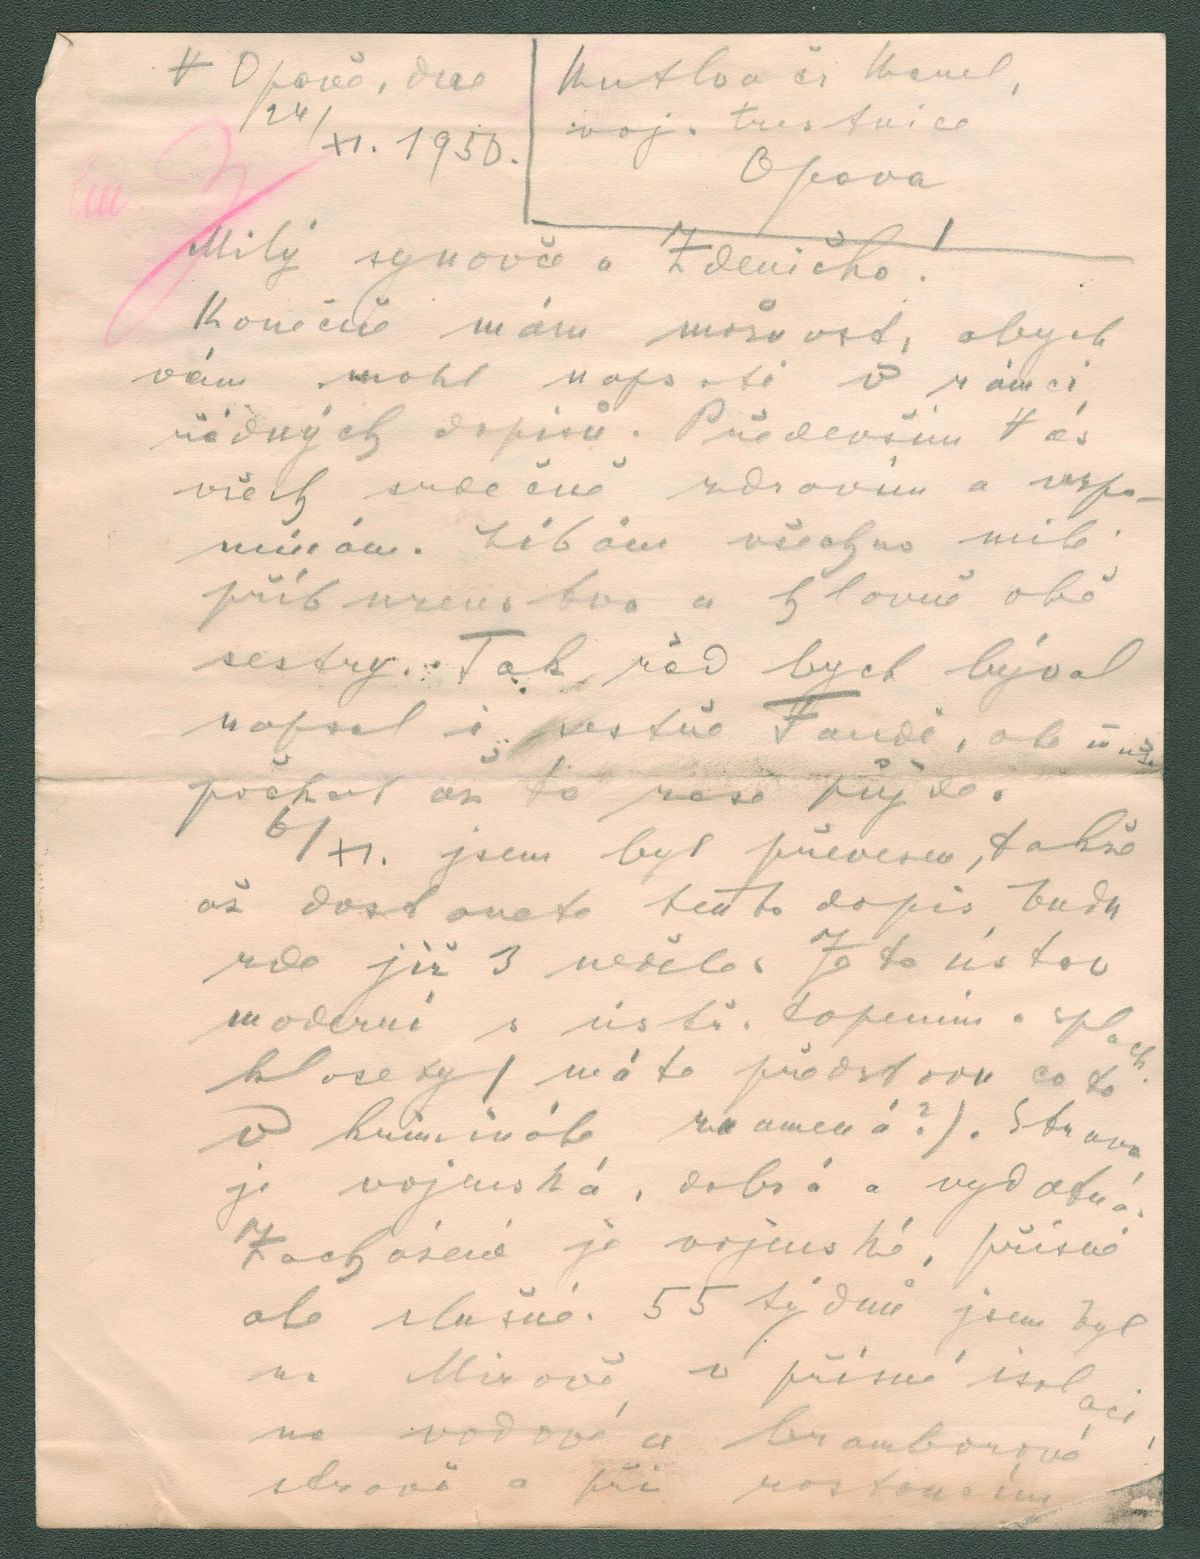 V Opavě, dne
24/XI. 1950.
Kutlvašr Karel,
voj. trestnice
Opava
Milý synovče a Zdeničko!
Konečně mám možnost, abych
vám mohl napsati v rámci
řádných dopisů. Především Vás
všech srdečně zdravím a vzpo-
mínám. Líbám všechno milé
příbuzenstvo a hlavně obě
sestry. Tak rád bych býval
napsal i sestře Fandě, ale
počkat až to zase půjde.
6/XI. jsem byl převezen, takže
až dostanete tento dopis budu
zde již 3 neděle. Je to ústav
moderní s ústř. topením a splach.
klosety / máte představu co to
v kriminále znamená?). Strava
je vojenská, dobrá a vydatná.
Zacházení je vojenské, přísné
ale slušné. 55 týdnů jsem byl
na Mírově v přísné isolaci,
na vodové a bramborové
stravě a při rostoucím